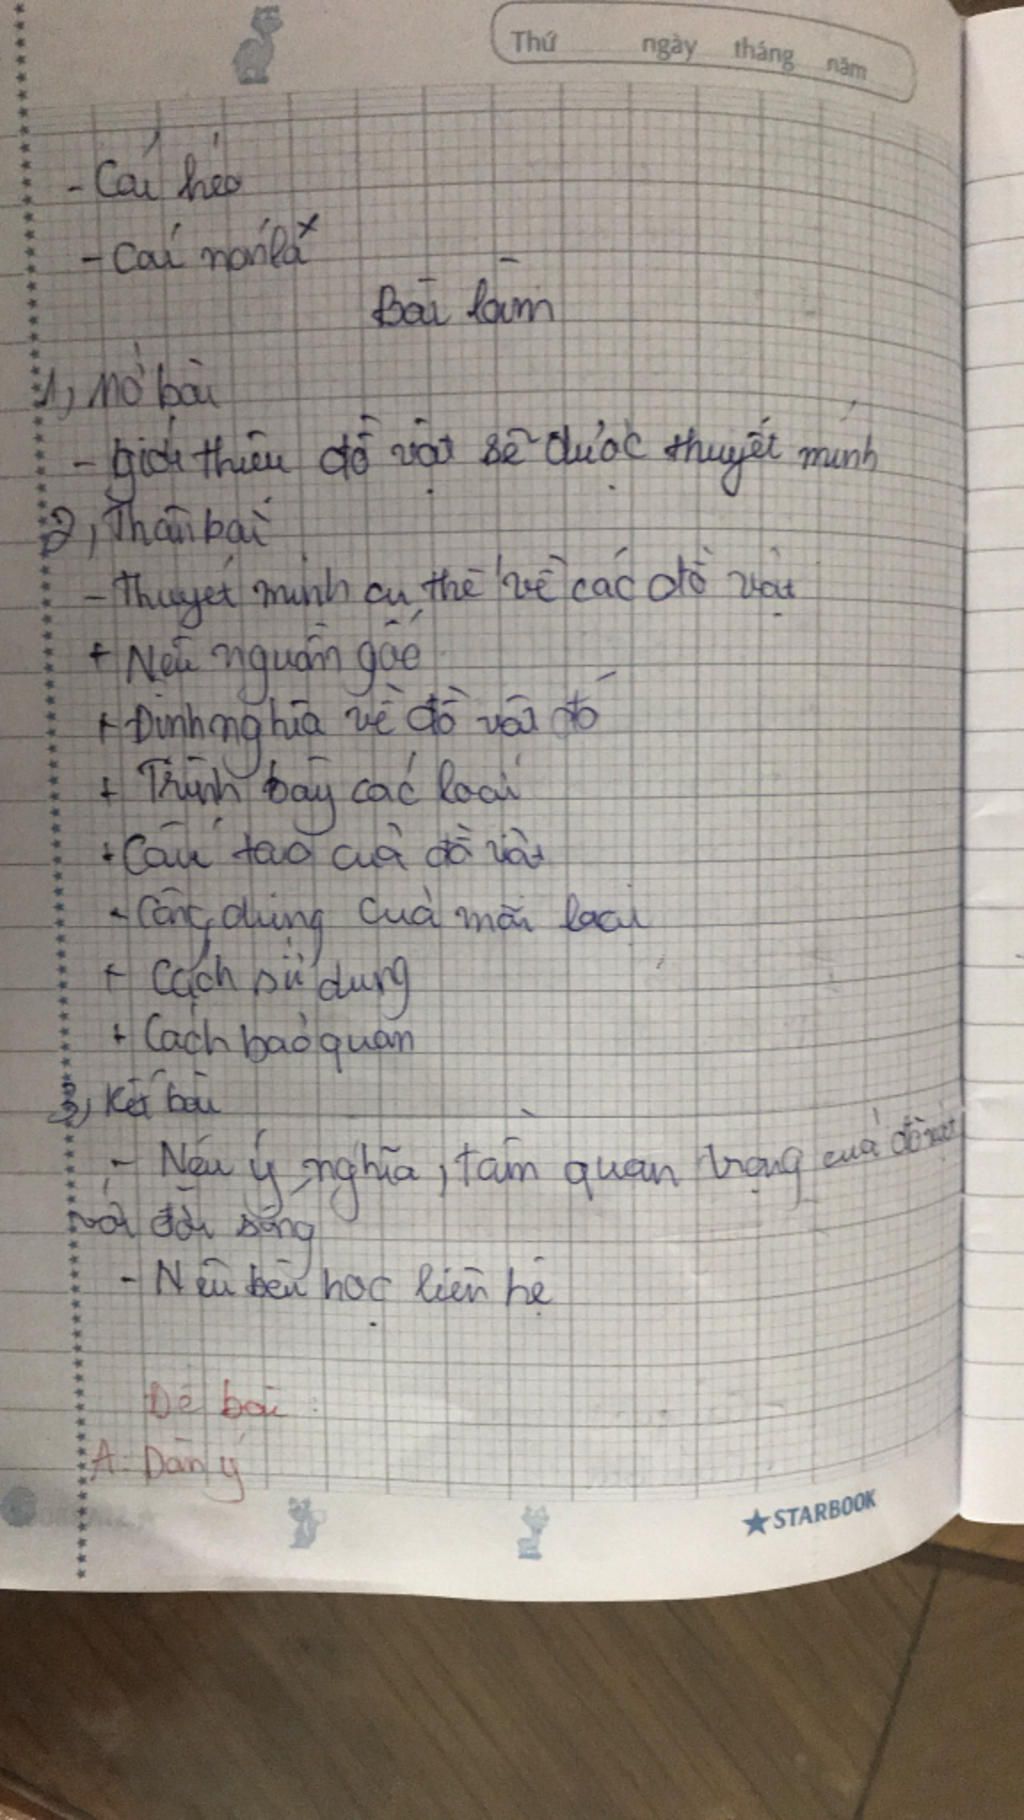 Thứ ngày tháng năm
- Cái kéo
- Cái nón lá x
Bài làm
1, Mở bài
- giới thiệu đồ vật sẽ được thuyết minh
2, Thân bài
- Thuyết minh cụ thể về các đồ vật
+ Nêu nguồn gốc
+ Định nghĩa về đồ vật đó
+ Trình bày các loại
+ Cấu tạo của đồ vật
+ Công dụng của mỗi loại
+ Cách sử dụng
+ Cách bảo quản
3, Kết bài
- Nêu ý nghĩa, tầm quan trọng của đồ vật
với đời sống
- Nêu bài học liên hệ
Đề bài :
A. Dàn ý
STARBOOK